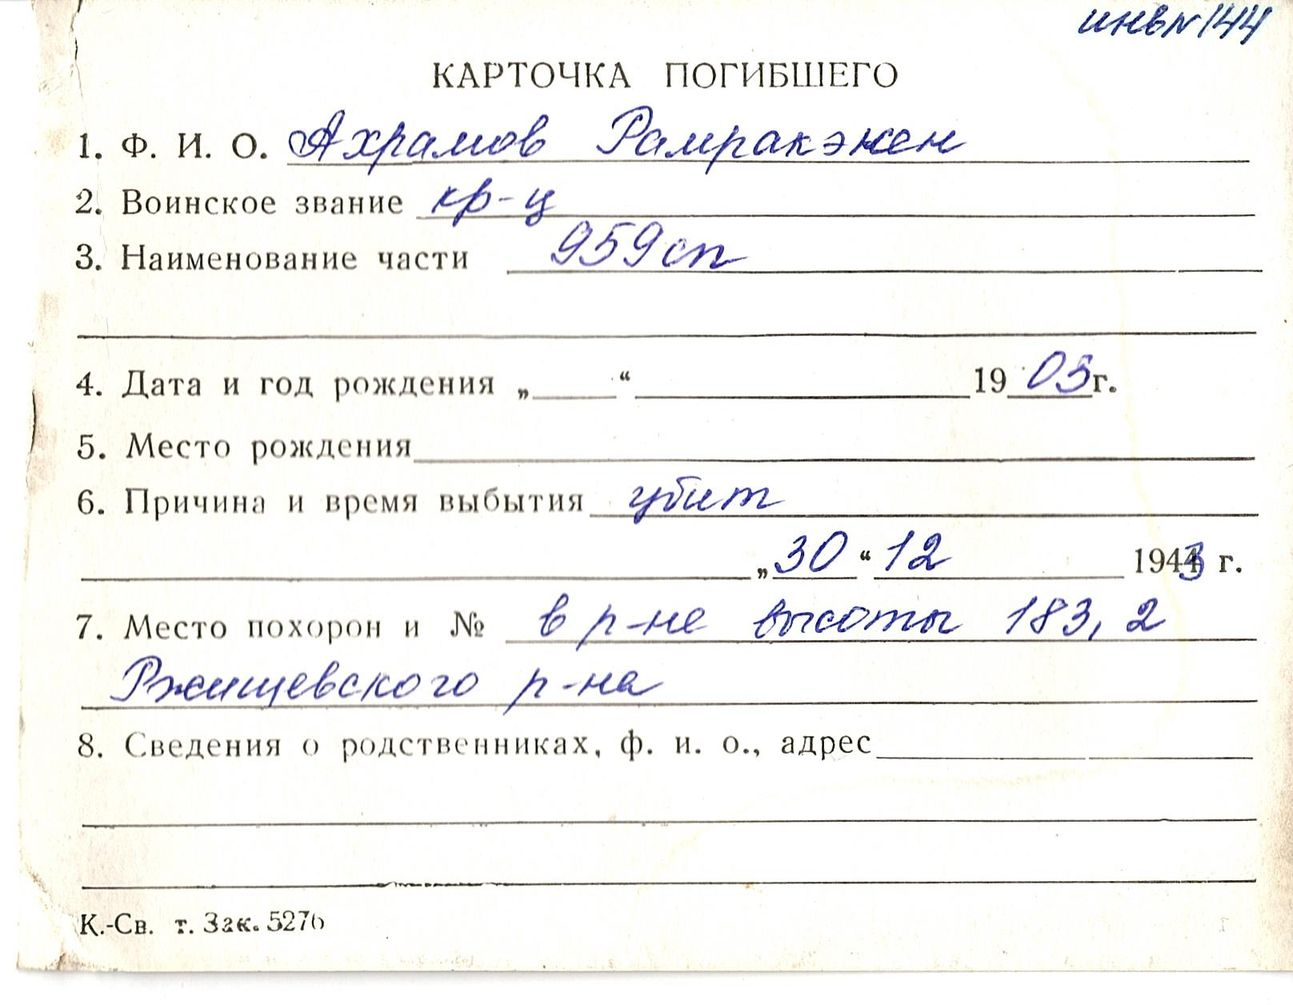 инв№144
КАРТОЧКА ПОГИБШЕГО
1. Ф. И. О. Ахрамов Рамракэжен
2. Воинское звание кр-ц
3. Наименование части 959сп
4. Дата и год рождения „ “ 1905г.
5. Место рождения
6. Причина и время выбытия убит
„30“ 12 1943 г.
7. Место похорон и № в р-не высоты 183,2
Ржищевского р-на
8. Сведения о родственниках, ф. и. о., адрес
К.-Св. т. Зак. 5276